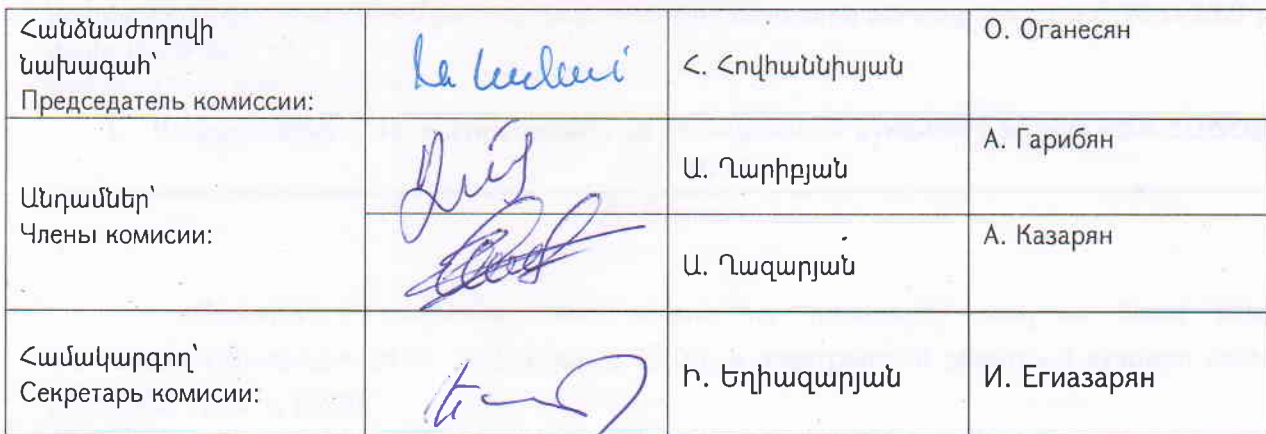 Հանձնաժողովի
նախագահ՝
Председатель комиссии:
Հ. Հովհաննիսյան
О. Оганесян
Անդամներ՝
Члены комисии:
Ա. Ղարիբյան
А. Гарибян
Ա. Ղազարյան
А. Казарян
Համակարգող՝
Секретарь комиссии:
Ի. Եղիազարյան
И. Егиазарян